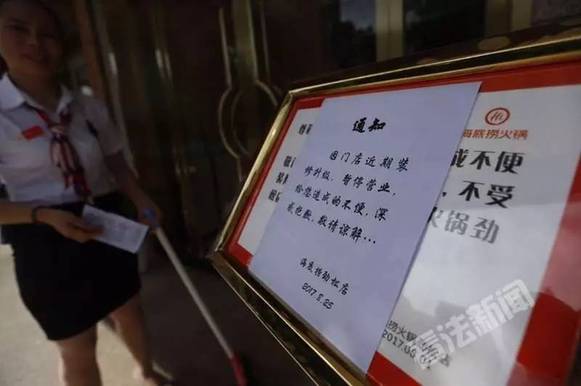 通知
因门店近期装
修升级，暂停营业，
给您造成的不便，深
感抱歉，敬请谅解...
海底捞劲松店
2017.8.25
海底捞火锅
成不便
，不受
火锅劲
捞火锅
2017.0
法新闻